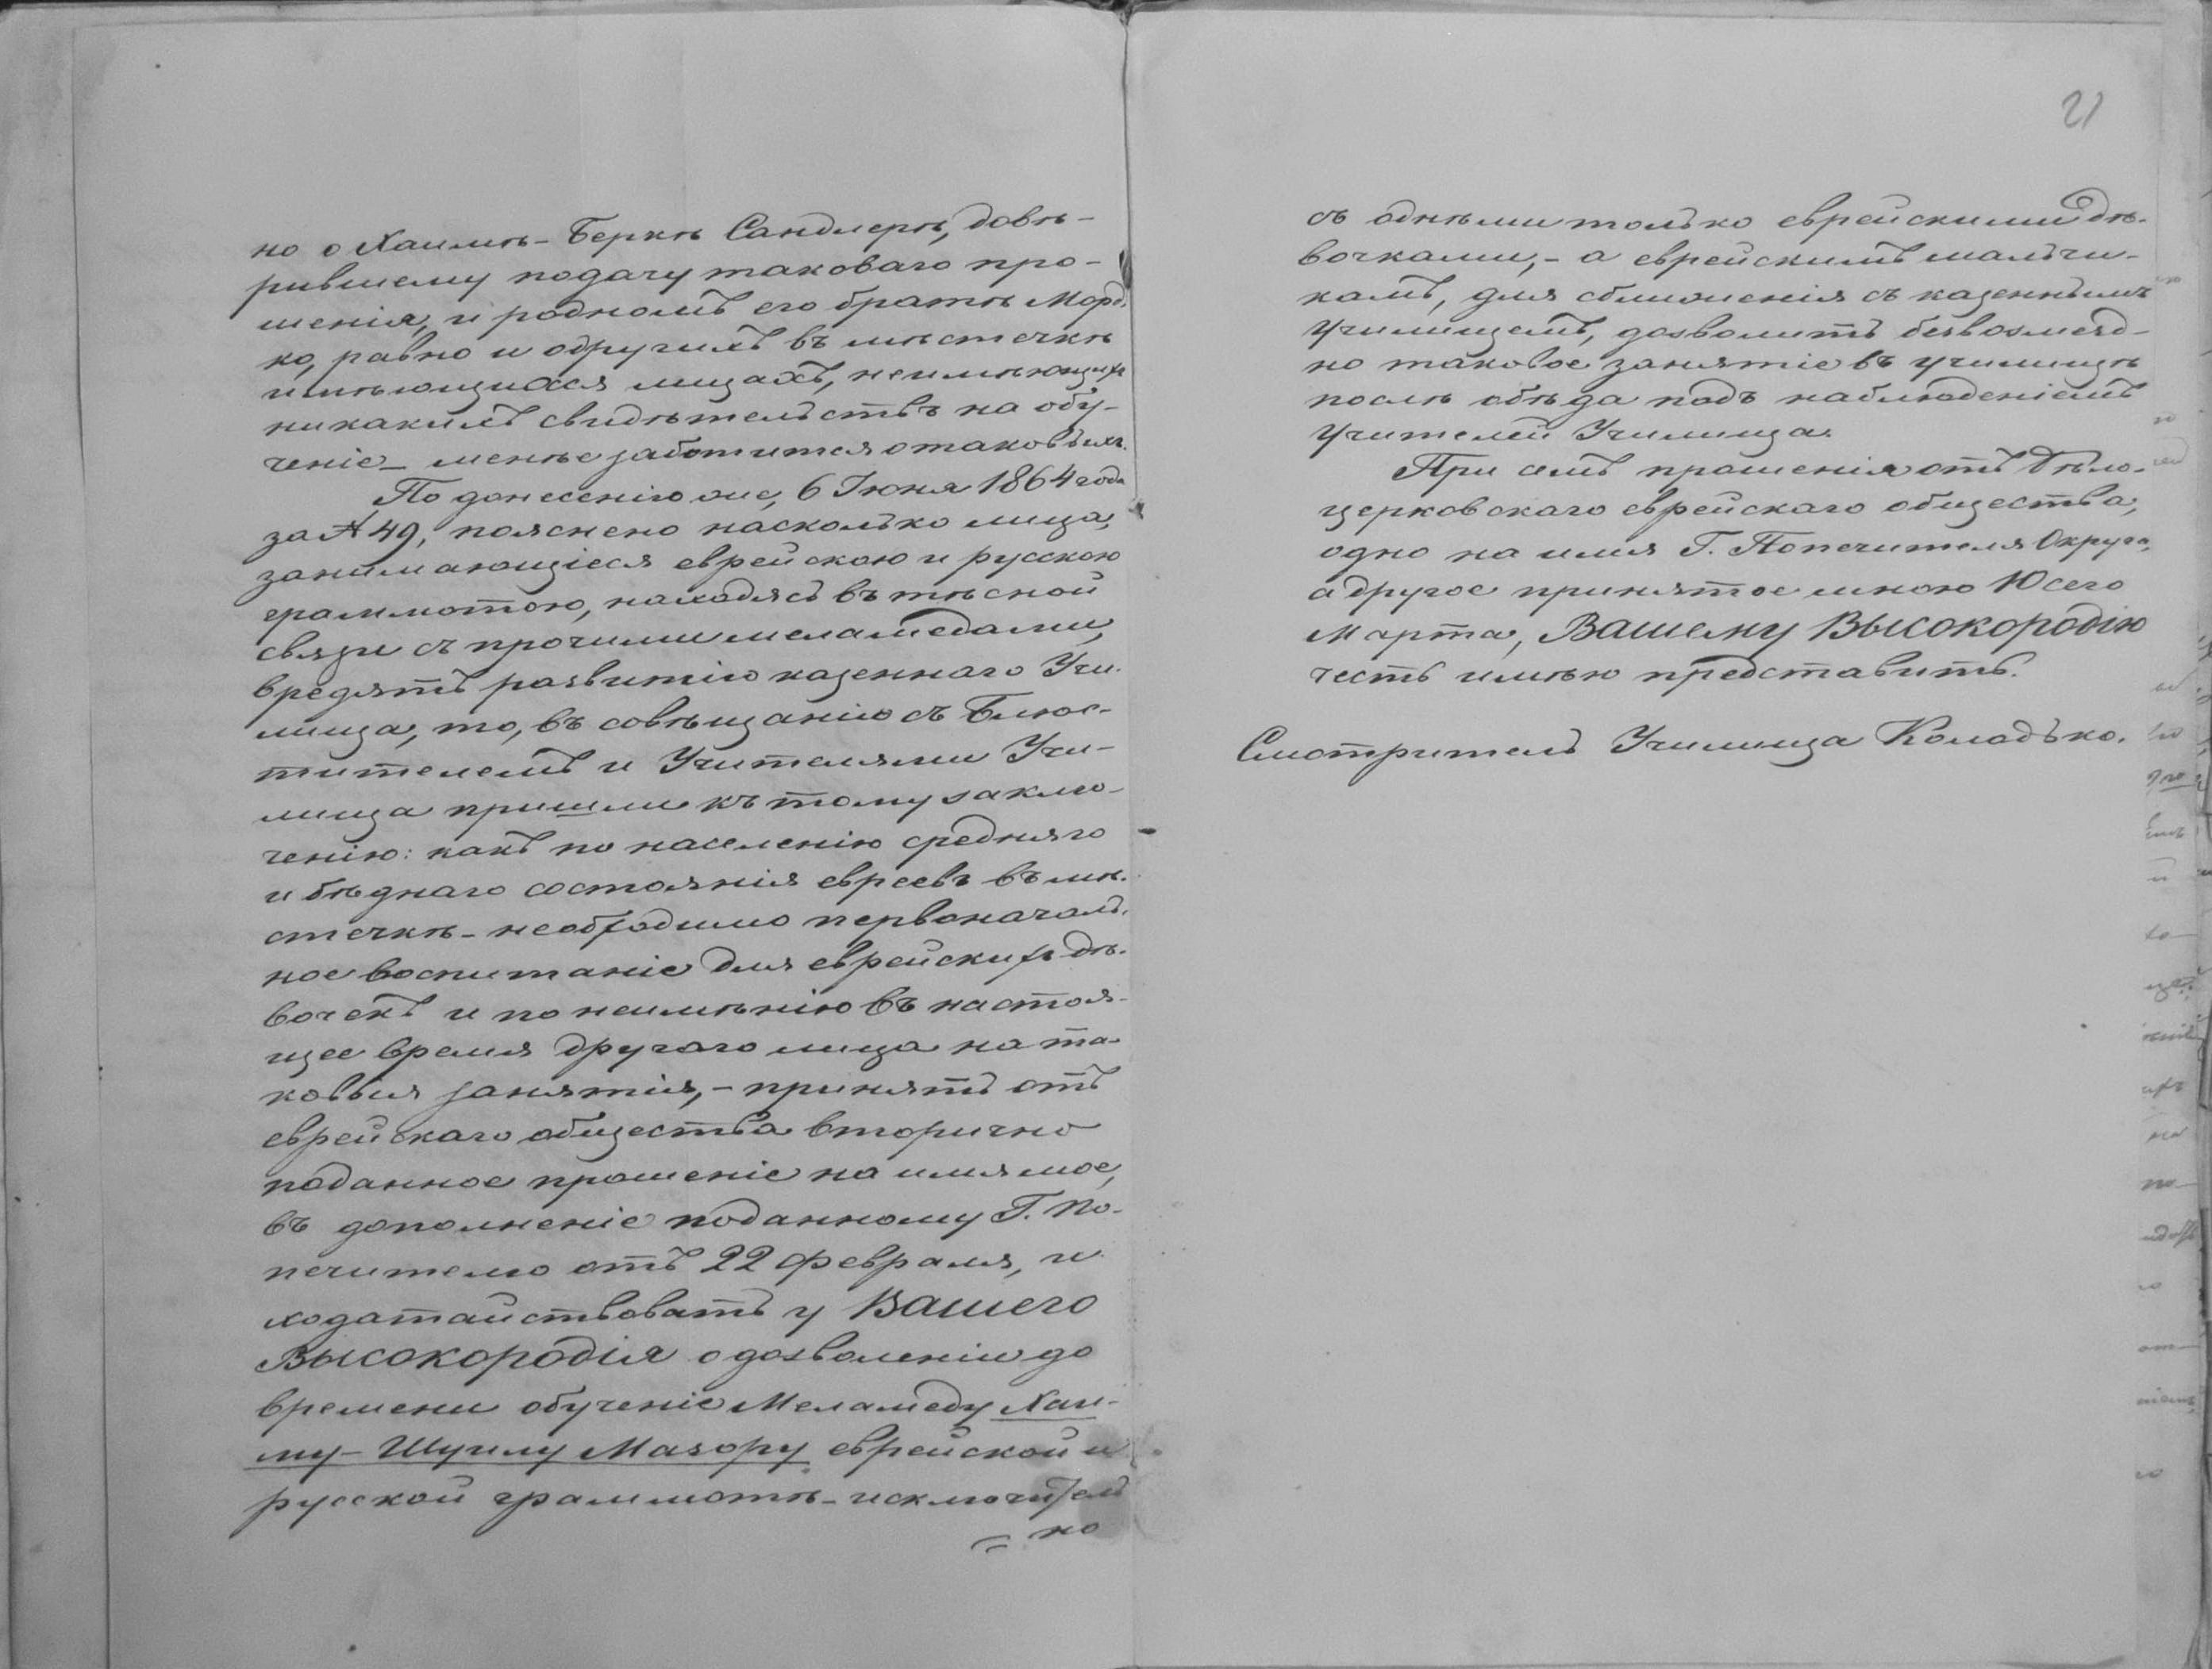 но о Хаимѣ-Беркѣ Сандлерѣ, довѣ-
рившему подачу таковаго про-
шенія, и родномъ его братѣ Морд-
ко, равно и другихъ въ мѣстечкѣ
имѣющихся лицахъ, неимѣющихъ
никакихъ свидѣтельствъ на обу-
ченіе – менѣе заботится о таковыхъ.
По донесенію же, 6 Іюня 1864 года
за № 49, пояснено насколько лица,
занимающіеся еврейскою и русскою
грамматою, находясь въ тѣсной
связи съ прочими меламедами,
вредятъ развитію казеннаго Учи-
лища, то, въ совѣщанію съ Блюс-
тителемъ и Учителями Учи-
лища пришли къ тому заклю-
ченію: какъ по населенію средняго
и бѣднаго состоянія евреевъ въ мѣ-
стечкѣ – необходимо первоначаль-
ное воспитаніе для еврейскихъ дѣ-
вочекъ и по неимѣнію въ настоя-
щее время другаго лица на та-
ковыя занятія, – принять отъ
еврейскаго общества вторично
поданное прошеніе на имя мое,
въ дополненіе поданному Г. По-
печителю отъ 22 февраля, и
ходатайствовать у Вашего
Высокородія о дозволеніи до
времени обученіе Меламеду Хаи-
му-Шулиму Мазору еврейской и
русской грамматѣ – исключитель
= но
21
съ однѣми только еврейскими дѣ-
вочками, – а еврейскимъ мальчи-
камъ, для сближенія съ казеннымъ
Училищемъ, дозволить безвозмезд-
но таковое занятіе въ училищѣ
послѣ обѣда подъ наблюденіемъ
Учителей Училища.
При семъ прошенія отъ Бѣло-
церковскаго еврейскаго общества,
одно на имя Г. Попечителя Округа,
а другое принятое мною 10 сего
Марта, Вашему Высокородію
честь имѣю представить.
Смотритель Училища Коладько.